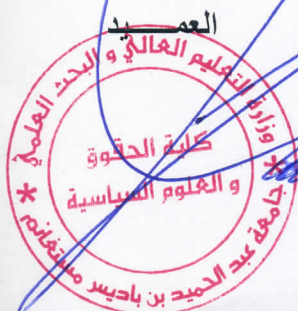 العميد
وزارة التعليم العالي و البحث العلمي
كلية الحقوق
و العلوم السياسية
* جامعة عبد الحميد بن باديس مستغانم *